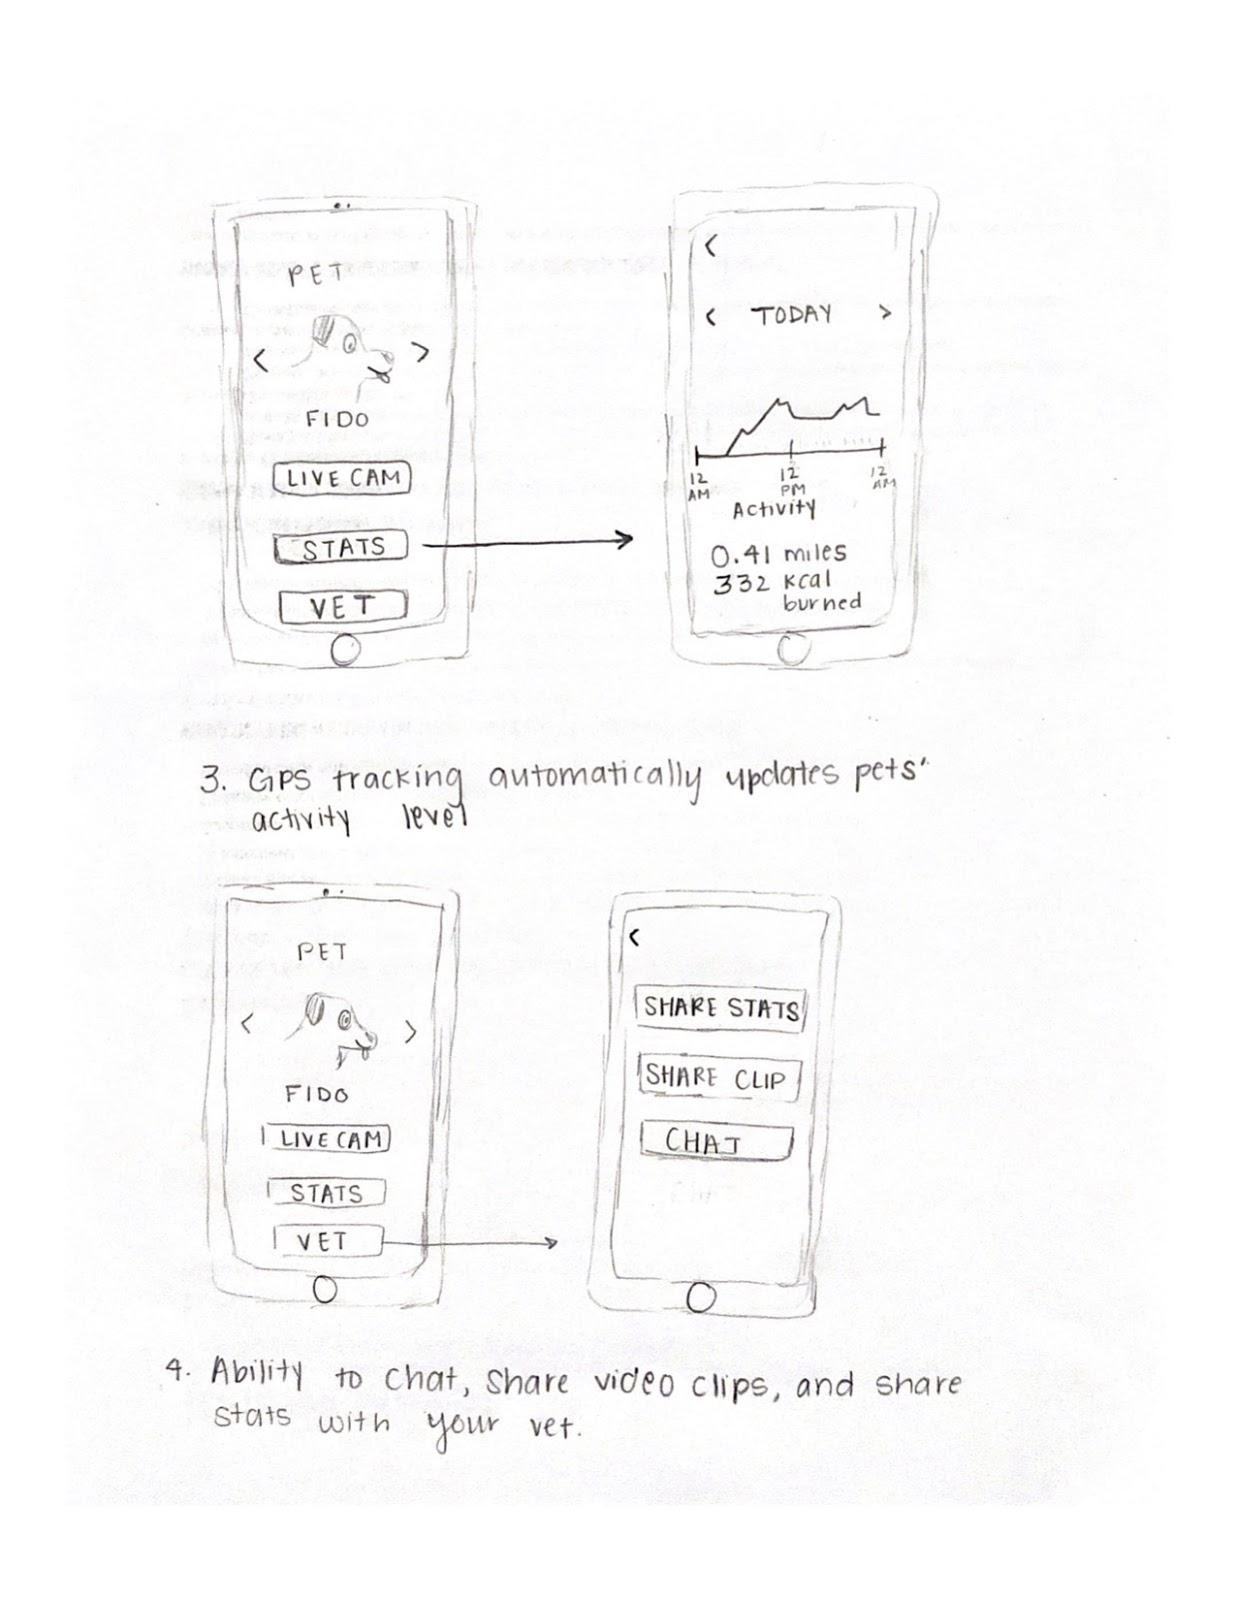 PET
< >
FIDO
LIVE CAM
STATS
VET
<
< TODAY >
12 AM 12 PM 12 AM
Activity
0.41 miles
332 kcal
burned
3. GPS tracking automatically updates pets'
activity level
PET
< >
FIDO
LIVE CAM
STATS
VET
<
SHARE STATS
SHARE CLIP
CHAT
4. Ability to chat, share video clips, and share
stats with your vet.